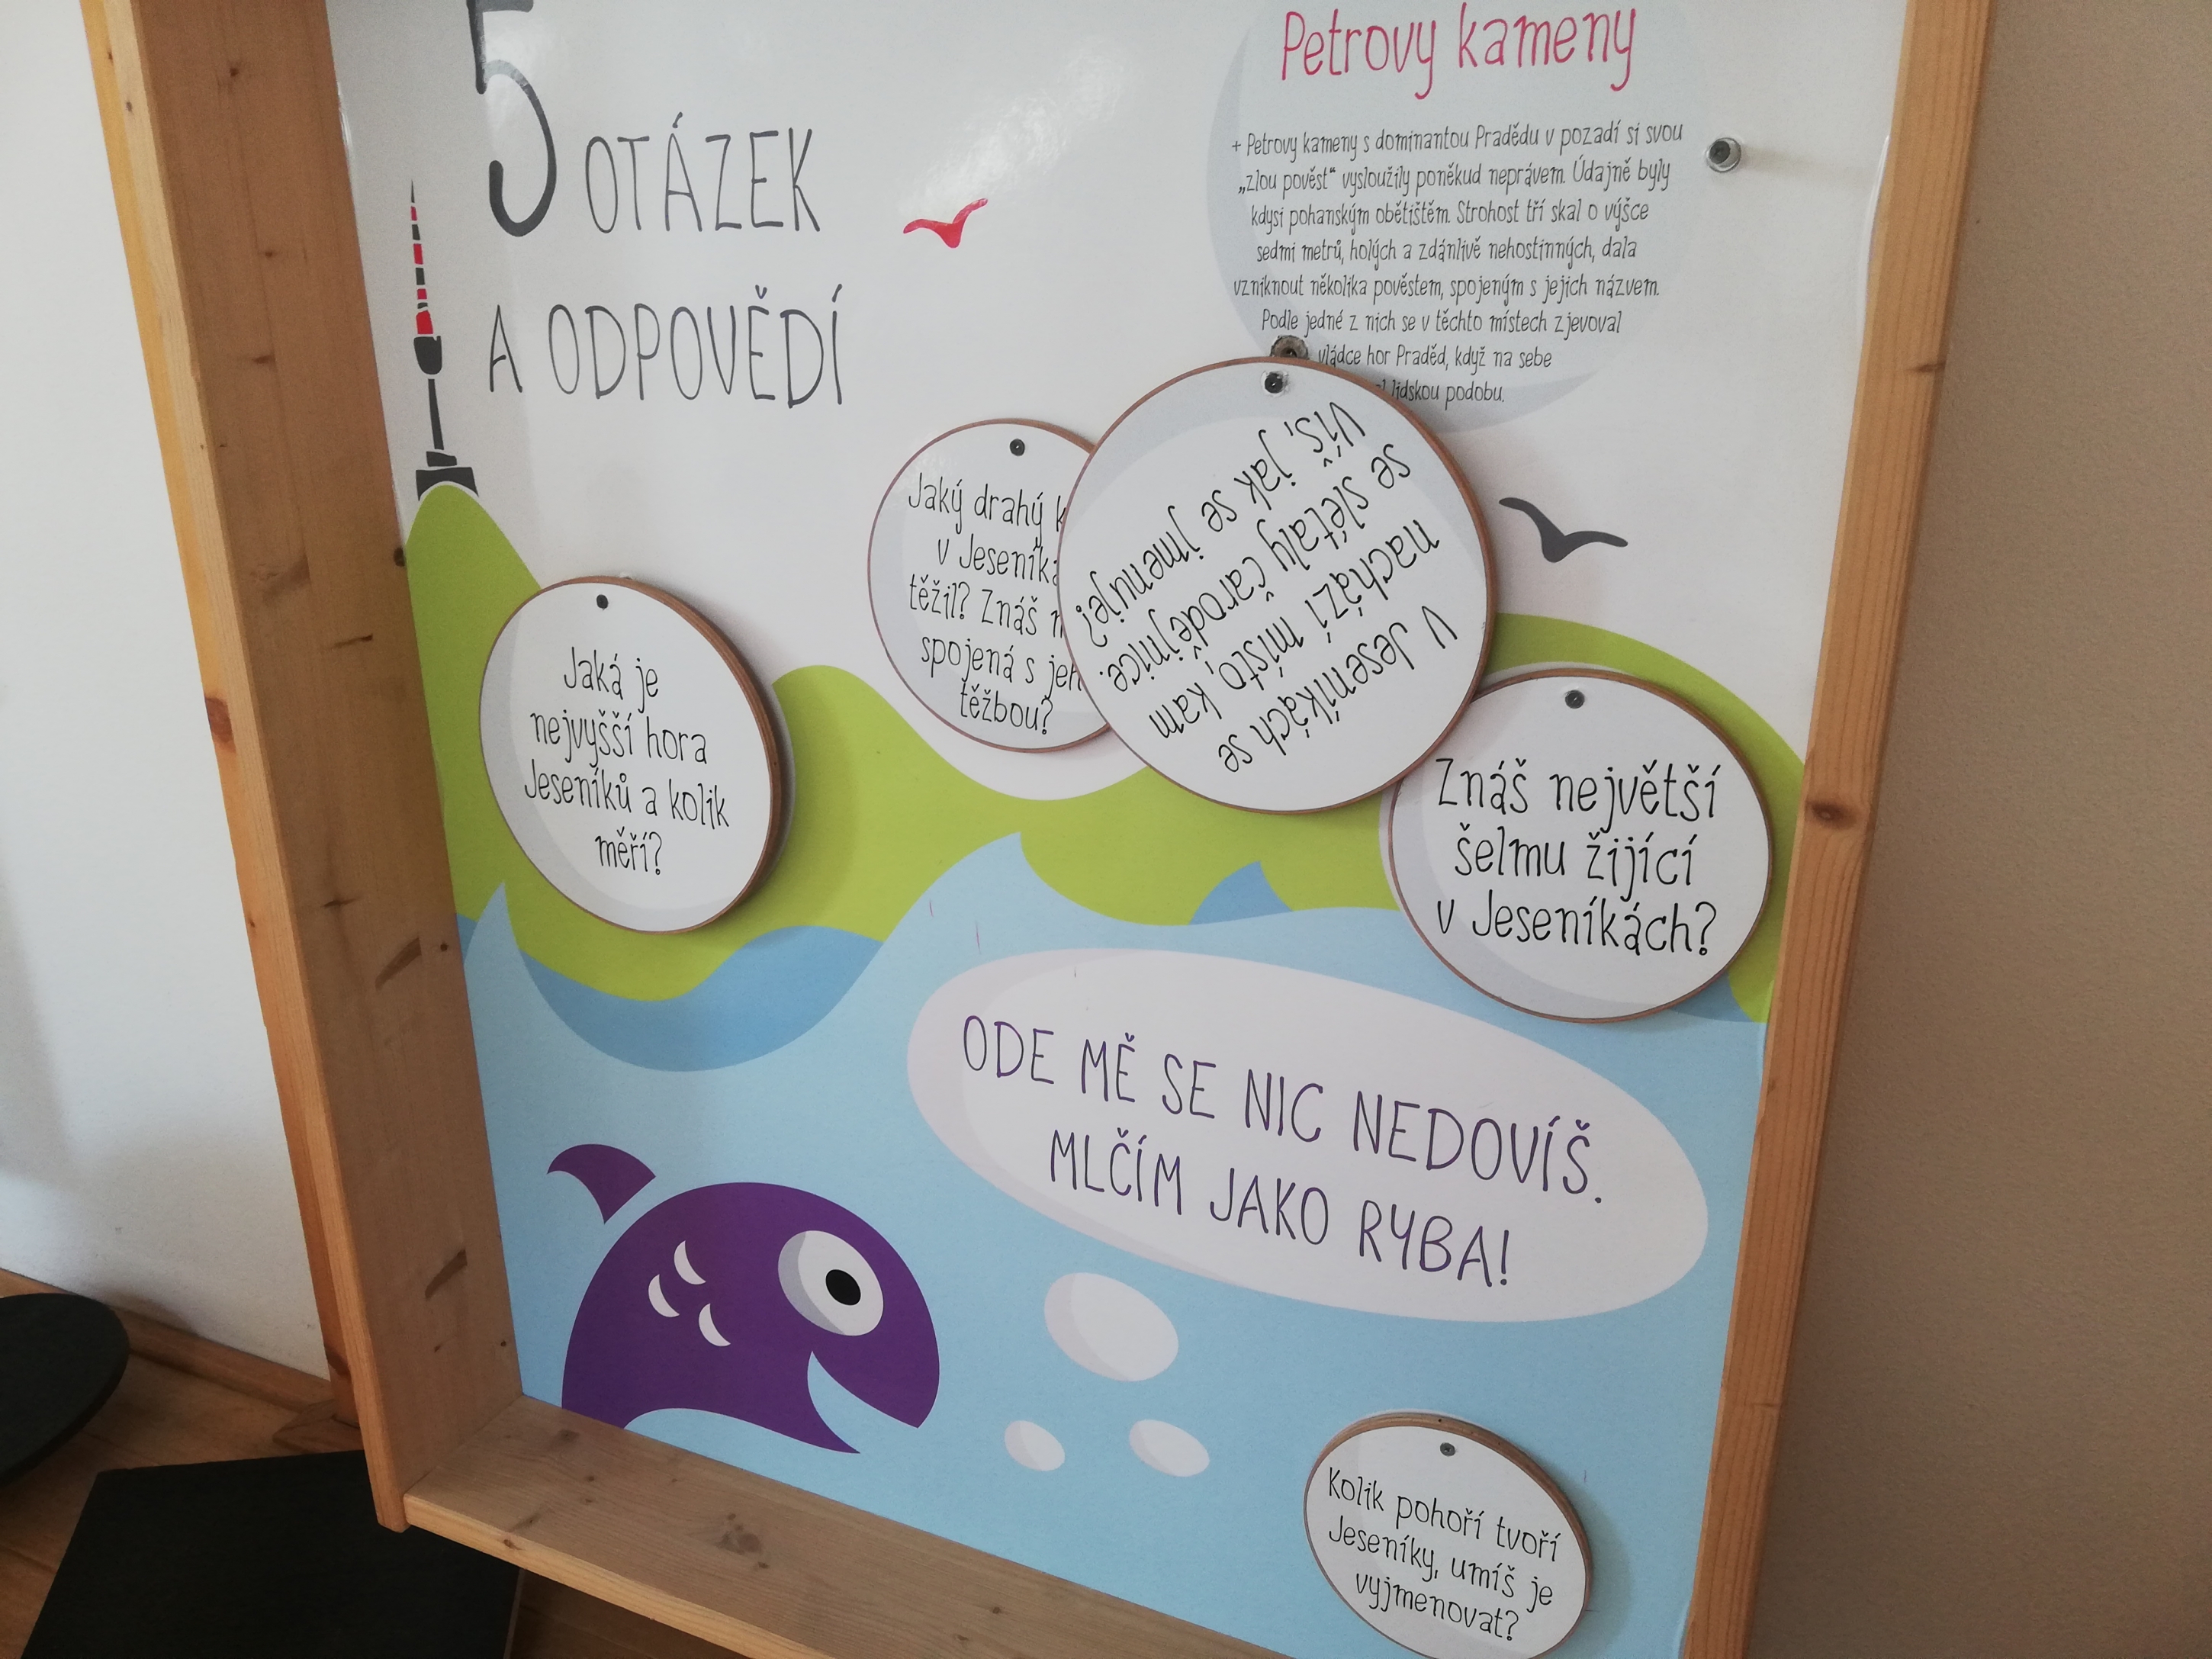 5 OTÁZEK
A ODPOVĚDÍ
Petrovy kameny
+ Petrovy kameny s dominantou Pradědu v pozadí si svou
„zlou pověst“ vysloužily poněkud neprávem. Údajně byly
kdysi pohanským obětištěm. Strohost tří skal o výšce
sedmi metrů, holých a zdánlivě nehostinných, dala
vzniknout několika pověstem, spojeným s jejich názvem.
Podle jedné z nich se v těchto místech zjevoval
vládce hor Praděd, když na sebe
lidskou podobu.
Jaký drahý
v
těžil? Znáš
spojená s
těžbou?
V Jeseníkách se
nachází místo, kam
se slétaly čarodějnice.
Víš, jak se jmenuje?
Jaká je
nejvyšší hora
Jeseníků a kolik
měří?
Znáš největší
šelmu žijící
v Jeseníkách?
ODE MĚ SE NIC NEDOVÍŠ.
MLČÍM JAKO RYBA!
Kolik pohoří tvoří
Jeseníky, umíš je
vyjmenovat?